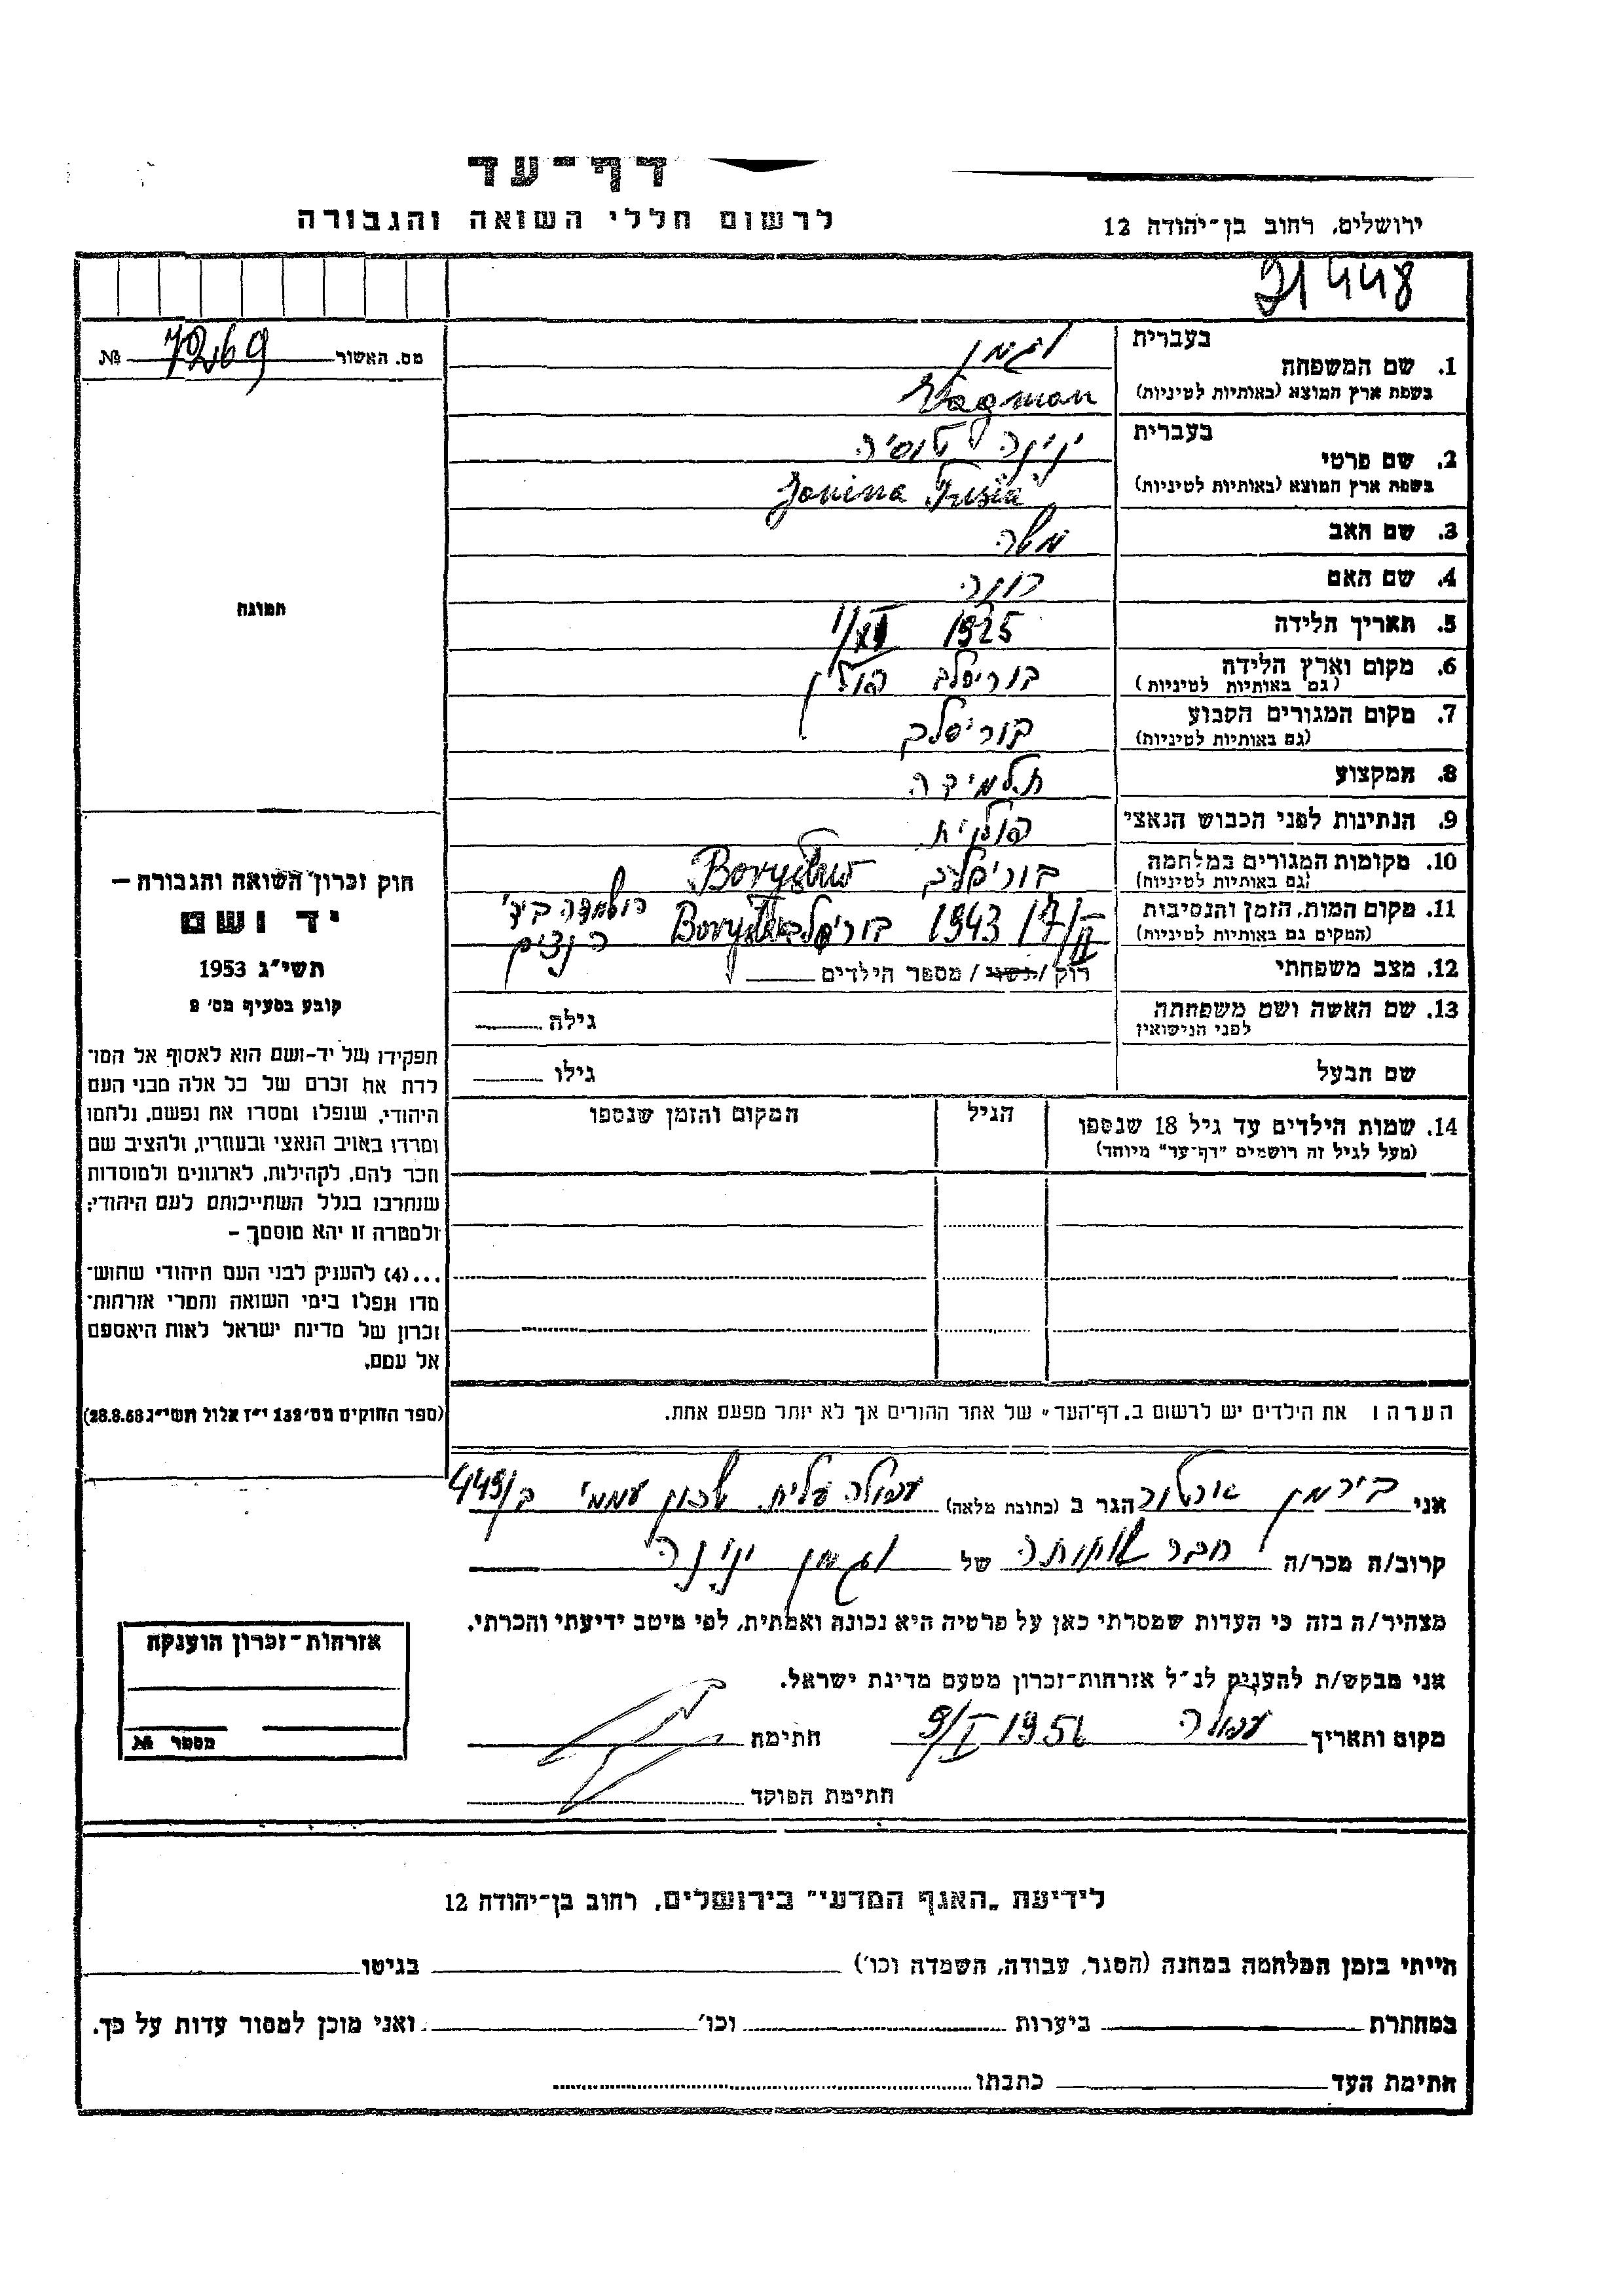 דף-עד
לרשום חללי השואה והגבורה
ירושלים, רחוב בן-יהודה 12
21448
מס. האשור 7269 №
1. שם המשפחה
בעברית
וגמן
בשפת ארץ המוצא (באותיות לטיניות)
Wagman
2. שם פרטי
בעברית
ינינה טוסיה
בשפת ארץ המוצא (באותיות לטיניות)
Janina Tusia
3. שם האב
משה
4. שם האם
5. תאריך הלידה
1925
6. מקום וארץ הלידה
(גם באותיות לטיניות)
בוריסלב פולין
7. מקום המגורים הקבוע
(גם באותיות לטיניות)
בוריסלב
8. המקצוע
תלמידה
9. הנתינות לפני הכבוש הנאצי
פולנית
10. מקומות המגורים במלחמה
(גם באותיות לטיניות)
בוריסלב Borysław
11. מקום המות, הזמן והנסיבות
(המקום גם באותיות לטיניות)
17/II 1943 בוריסלב Borysław הושמדה ביד'
הנצים
12. מצב משפחתי
רוק / נשוי / מספר הילדים
13. שם האשה ושם משפחתה
לפני הנישואין
גילה
שם הבעל
גילו
14. שמות הילדים עד גיל 18 שנספו
(מעל לגיל זה רושמים "דף-עד" מיוחד)
הגיל
המקום והזמן שנספו
הערה: את הילדים יש לרשום ב"דף-העד" של אחר ההורים אך לא יותר מפעם אחת.
תמונה
חוק זכרון השואה והגבורה —
יד ושם
תשי"ג 1953
קובע בסעיף מס' 2
תפקידו של יד-ושם הוא לאסוף אל המו־
לדת את זכרם של כל אלה מבני העם
היהודי, שנפלו ומסרו את נפשם, נלחמו
ומרדו באויב הנאצי ובעוזריו, ולהציב שם
וזכר להם, לקהילות, לארגונים ולמוסדות
שנחרבו בגלל השתייכותם לעם היהודי;
ולמטרה זו יהא מוסמך –
...(4) להעניק לבני העם היהודי שהוש־
מדו ונפלו בימי השואה והמרי אזרחות־
זכרון של מדינת ישראל לאות היאספם
אל עמם.
(ספר החוקים מס' 132 י"ז אלול תשי"ג 28.8.53)
אני בירמן ארטור הגר ב (כתובת מלאה) עפולה עלית שכון עממי ב/449
קרוב/ה מכר/ה חבר של וגמן ינינה
מצהיר/ה בזה כי העדות שמסרתי כאן על פרטיה היא נכונה ואמתית, לפי מיטב ידיעתי והכרתי.
אני מבקש/ת להעניק לנ"ל אזרחות-זכרון מטעם מדינת ישראל.
מקום ותאריך עפולה 9/I 1956 חתימת
חתימת הפוקד
אזרחות-זכרון הוענקה
מספר №
לידיעת "האגף המדעי" בירושלים, רחוב בן-יהודה 12
הייתי בזמן המלחמה במחנה (הסגר, עבודה, השמדה וכו') בגיטו
במחתרת ביערות וכו' ואני מוכן למסור עדות על כך.
חתימת העד כתבתו